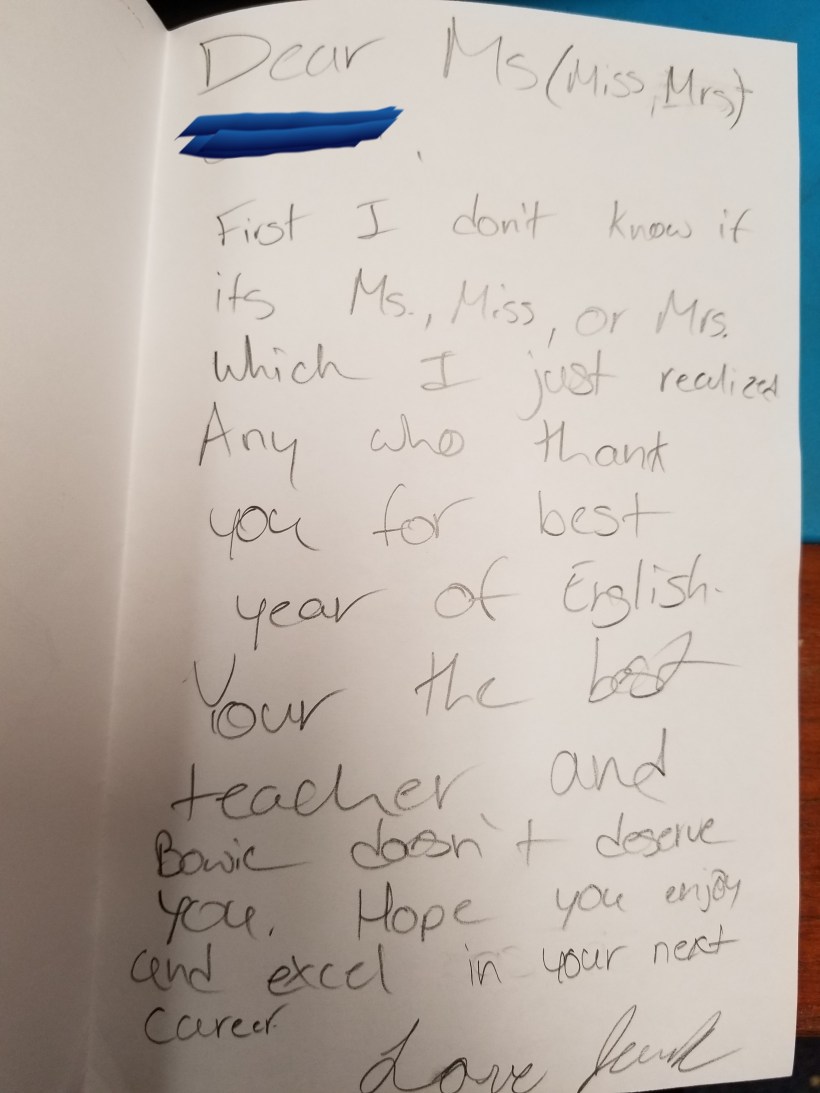 Dear Ms (Miss, Mrs)
First I don't know if
its Ms., Miss, or Mrs.
which I just realized
Any who thank
you for best
year of English.
Your the best
teacher and
Bowie doesn't deserve
you. Hope you enjoy
and excel in your next
career.
Love